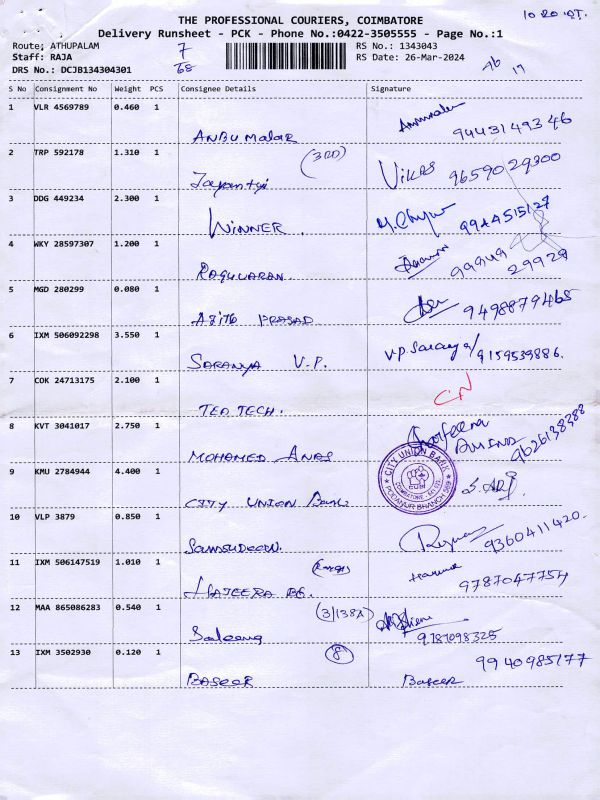 THE PROFESSIONAL COURIERS, COIMBATORE
10 20
Delivery Runsheet - PCK - Phone No.:0422-3505555 - Page No.:1
Route: ATHUPALAM 7 RS No.: 1343043
Staff: RAJA 68 RS Date: 26-Mar-2024
DRS No.: DCJB134304301
S No Consignment No Weight PCS Consignee Details Signature
1 VLR 4569789 0.460 1
ANBU MALAR 9443149346
2 TRP 592178 1.310 1 (3RD)
Jayanthi VIKAS 9659029300
3 DDG 449234 2.300 1
WINNER 9944515127
4 WKY 28597307 1.200 1
RAGUVARAN 99949 29929
5 MGD 280299 0.080 1
AJITH PRASAD 9498879465
6 IXM 506092298 3.550 1
SARANYA V.P. V.P. Saranya 9159539886.
7 COK 24713175 2.100 1
TEQ TECH. CN
8 KVT 3041017 2.750 1
MOHAMED ANAS AMINA 9626138388
9 KMU 2784944 4.400 1
CITY UNION Bank
CITY UNION BANK
COIMBATORE
CUB
PODANUR BRANCH
10 VLP 3879 0.850 1
SAMSUDEEN. 9360411420.
11 IXM 506147519 1.010 1
HAJEERA 9787047754
12 MAA 865086283 0.540 1 (3/138A)
9787098325
13 IXM 3502930 0.120 1 8 9940985177
BASEER Baseer